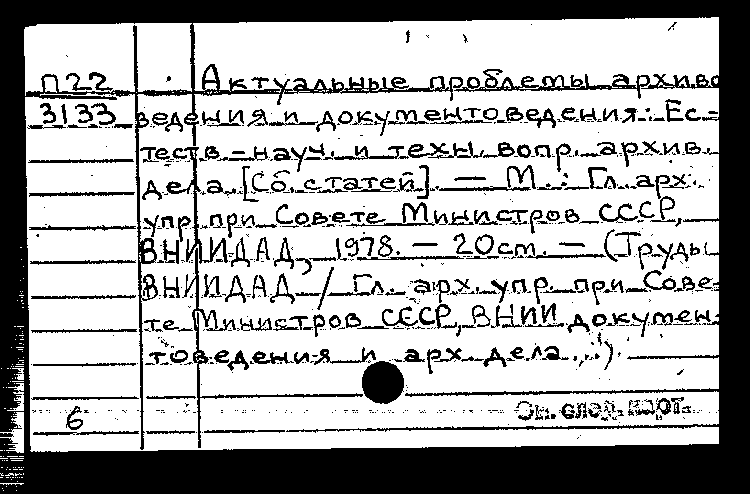 П22 Актуальные проблемы архиво
3133 ведения и документоведения: Ес-
теств.-науч. и техн. вопр. архив.
дела. [Сб. статей]. — М.: Гл. арх.
упр. при Совете Министров СССР,
ВНИИДАД, 1978. — 20см. — (Труды
ВНИИДАД / Гл. арх. упр. при Сове-
те Министров СССР, ВНИИ докумен-
товедения и арх. дела...).
6 См. след. карт.